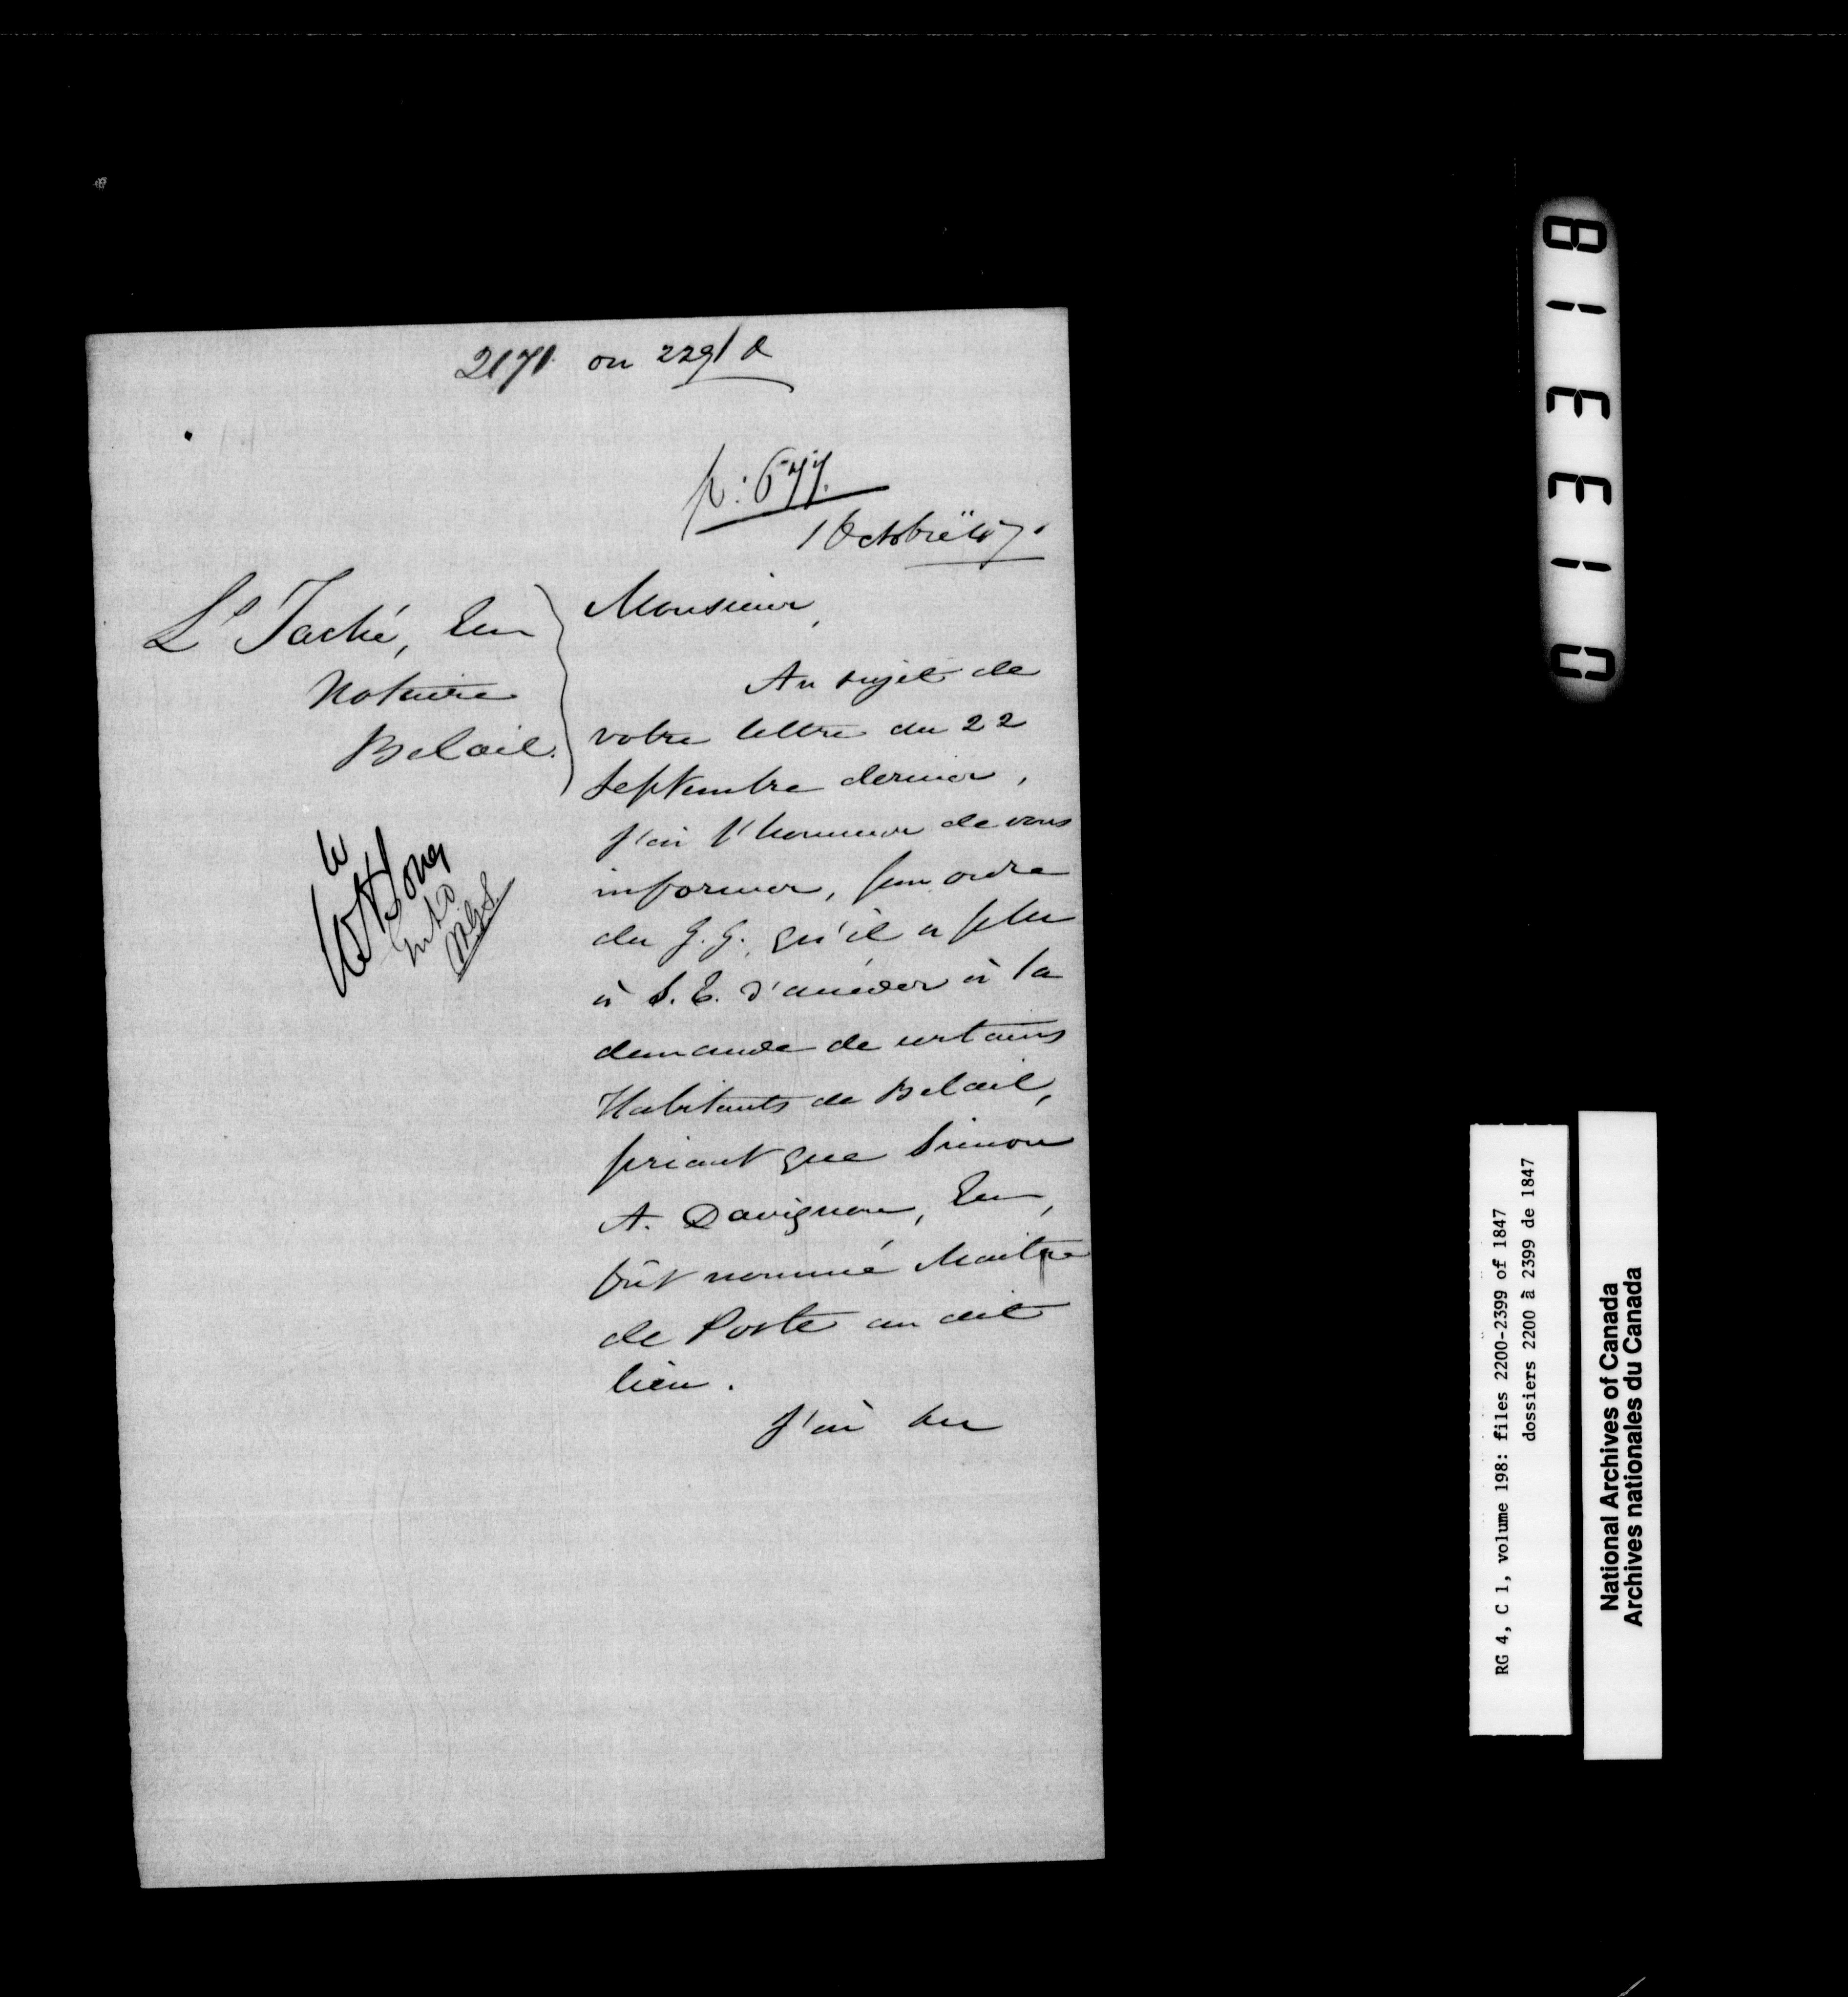 2171 on 2291 &
p: 677.
1 Octobre 47.
Ls Taché, Ecr
Notaire
Belœil.
Monsieur,
Au sujet de
votre lettre du 22
Septembre dernier,
J'ai l'honneur de vous
informer, par ordre
du G. G., qu'il a plu
à S. E. d'accéder à la
demande de certains
Habitants de Belœil,
priant que Simon
A. Davignon, Ecr,
fût nommé Maitre
de Poste au dit
lieu.
J'ai &c
813310
RG 4, C 1, volume 198: files 2200-2399 of 1847
dossiers 2200 à 2399 de 1847
National Archives of Canada
Archives nationales du Canada